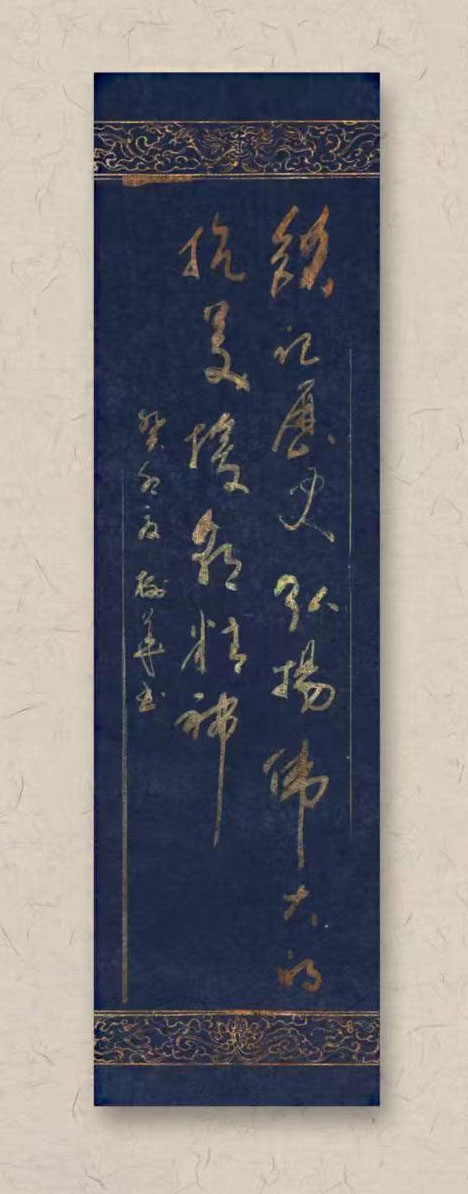 铭记历史弘扬伟大的
抗美援朝精神
癸卯夏树华书